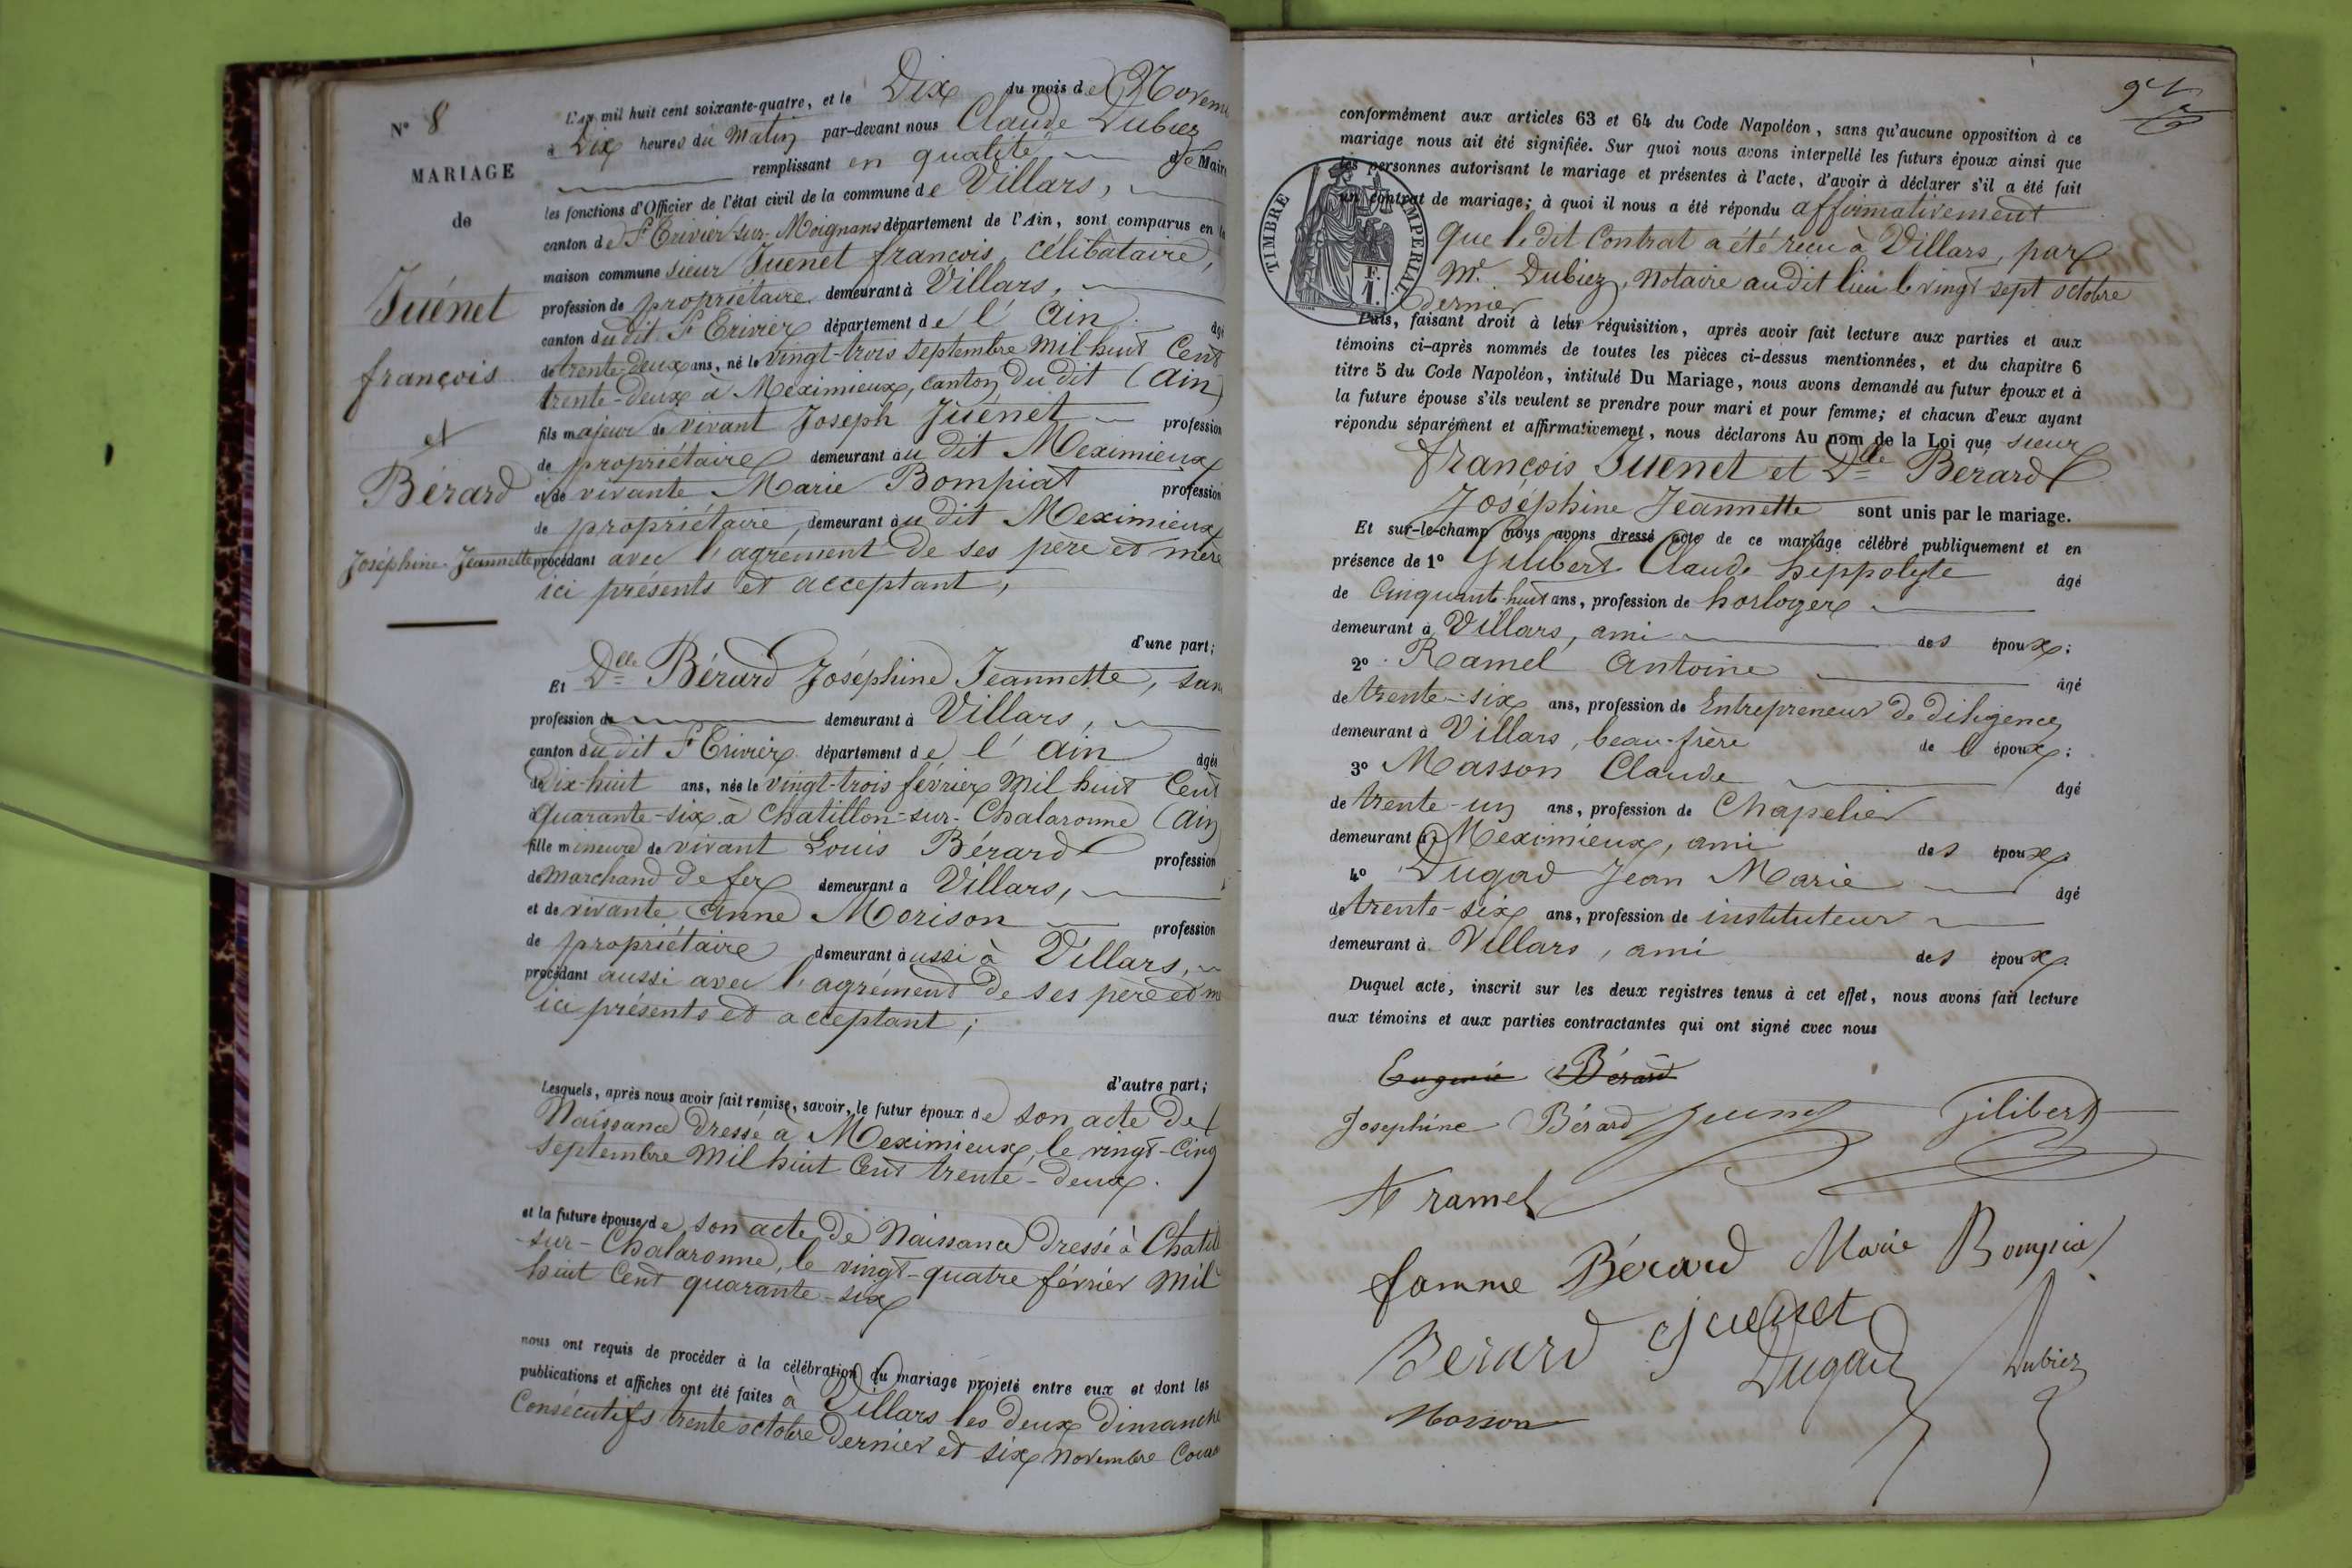 N° 8
MARIAGE
de
Juénet
françois
et
Bérard
Joséphine Jeannette
L'an mil huit cent soixante-quatre, et le Dix du mois de Novem
à Dix heures du Matin par-devant nous Claude Dubiez
remplissant en qualité de Maire
les fonctions d'Officier de l'état civil de la commune de Villars,
canton de St Trivier sur Moignans département de l'Ain, sont comparus en la
maison commune sieur Juenet françois, célibataire,
profession de propriétaire demeurant à Villars,
canton du dit St Trivier département de l'Ain. âgé
de trente-deux ans, né le vingt-trois septembre Mil huit Cent
trente-deux à Meximieux, canton du dit (Ain)
fils majeur de vivant Joseph Juénet profession
de propriétaire demeurant au dit Meximieux
et de vivante Marie Bompiat profession
de propriétaire, demeurant au dit Meximieux
procédant avec l'agrément de ses père et mère
ici présents et acceptant,
d'une part;
Et Dlle Bérard Joséphine Jeannette, san
profession de demeurant à Villars,
canton du dit St Trivier département de l'Ain âgée
de Dix-huit ans, née le vingt-trois février Mil huit Cent
quarante-six à Chatillon-sur-Chalaronne (Ain)
fille mineure de vivant Louis Bérard profession
de Marchand de fer demeurant à Villars,
et de vivante Anne Morison profession
de propriétaire demeurant aussi à Villars,
procédant aussi avec l'agrément de ses père et m
ici présents et acceptant;
d'autre part;
Lesquels, après nous avoir fait remise, savoir, le futur époux de son acte de
Naissance dressé à Meximieux, le vingt-cinq
septembre Mil huit Cent trente-deux.
et la future épouse de son acte de Naissance dressé à Chatill
-sur-Chalaronne, le vingt-quatre février Mil
huit Cent quarante-six
nous ont requis de procéder à la célébration du mariage projeté entre eux et dont les
publications et affiches ont été faites à Villars les deux Dimanche
Consécutifs trente octobre Dernier et six Novembre Coura
conformément aux articles 63 et 64 du Code Napoléon, sans qu'aucune opposition à ce
mariage nous ait été signifiée. Sur quoi nous avons interpellé les futurs époux ainsi que
les personnes autorisant le mariage et présentes à l'acte, d'avoir à déclarer s'il a été fait
un contrat de mariage; à quoi il nous a été répondu affirmativement
TIMBRE IMPERIAL
Que le dit Contrat a été reçu à Villars, par
Me Dubiez, Notaire au dit lieu le vingt-sept octobre
dernier
Puis, faisant droit à leur réquisition, après avoir fait lecture aux parties et aux
témoins ci-après nommés de toutes les pièces ci-dessus mentionnées, et du chapitre 6
titre 5 du Code Napoléon, intitulé Du Mariage, nous avons demandé au futur époux et à
la future épouse s'ils veulent se prendre pour mari et pour femme; et chacun d'eux ayant
répondu séparément et affirmativement, nous déclarons Au nom de la Loi que sieur
François Juenet et Dlle Bérard
Joséphine Jeannette sont unis par le mariage.
Et sur-le-champ nous avons dressé acte de ce mariage célébré publiquement et en
présence de 1° Gilibert Claude hippolyte âgé
de Cinquante-huit ans, profession de horloger
demeurant à Villars, ami des époux;
2° Ramel Antoine âgé
de trente-six ans, profession de Entrepreneur de diligence
demeurant à Villars, beau-frère de l'époux;
3° Masson Claude âgé
de trente-un ans, profession de Chapelier
demeurant à Meximieux, ami des époux
4° Dugad Jean Marie âgé
de trente-six ans, profession de instituteur
demeurant à Villars, ami des époux.
Duquel acte, inscrit sur les deux registres tenus à cet effet, nous avons fait lecture
aux témoins et aux parties contractantes qui ont signé avec nous
Eugenie Bérard
Josephine Bérard Juenet Gilibert
A ramel
famme Bérard Marie Bompiat
Berard Juenet
Dugad Dubiez
Masson